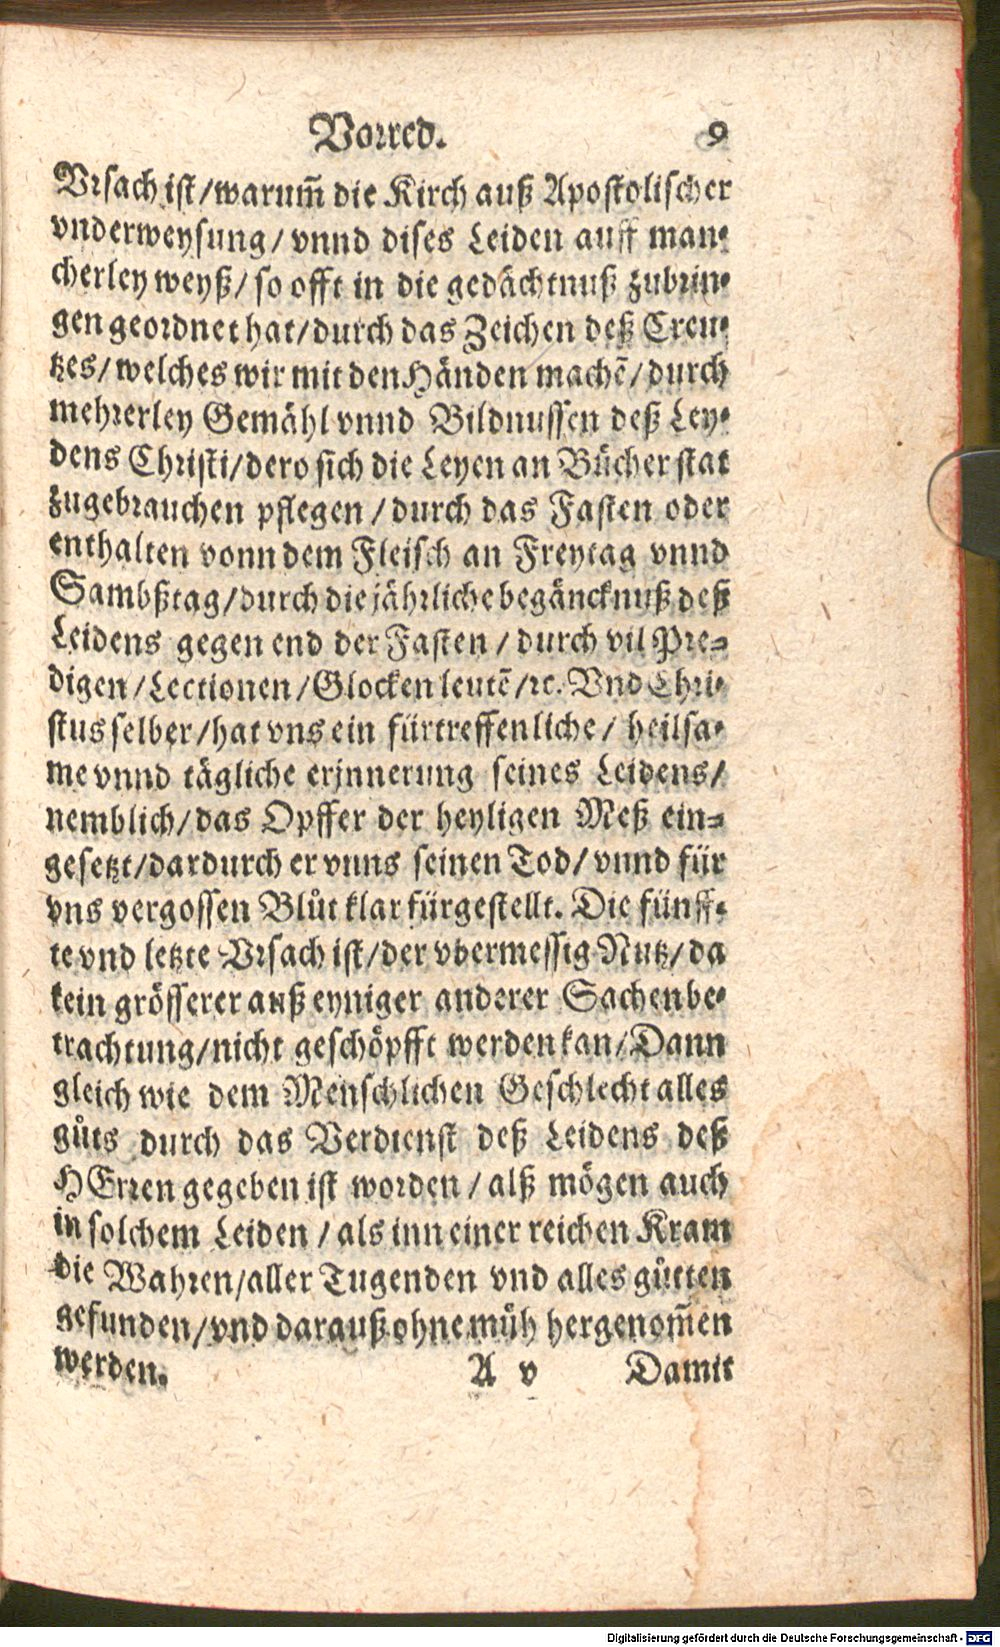 Vorred. 9
Vrsach ist/warum̃ die Kirch auß Apostolischer
vnderweysung/vnnd dises Leiden auff man-
cherley weyß/so offt in die gedächtnuß zubrin-
gen geordnet hat/durch das Zeichen deß Creu-
tzes/welches wir mit den Händen machẽ/durch
mehrerley Gemähl vnnd Bildnussen deß Ley-
dens Christi/dero sich die Leyen an Bücher stat
zugebrauchen pflegen/durch das Fasten oder
enthalten vonn dem Fleisch an Freytag vnnd
Sambßtag/durch die jährliche begäncknuß deß
Leidens gegen end der Fasten/durch vil Pre-
digen/Lectionen/Glocken leutẽ/ꝛc. Vnd Chri-
stus selber/hat vns ein fürtreffenliche/heilsa-
me vnnd tägliche erjnnerung seines Leidens/
nemblich/das Opffer der heyligen Meß ein-
gesetzt/dardurch er vnns seinen Tod/vnnd für
vns vergossen Blůt klar fürgestellt. Die fünff-
te vnd letzte Vrsach ist/der vbermessig Nutz/da
kein grösserer auß eyniger anderer Sachen be-
trachtung/nicht geschöpfft werden kan/Dann
gleich wie dem Menschlichen Geschlecht alles
gůts durch das Verdienst deß Leidens deß
HErren gegeben ist worden/alß mögen auch
in solchem Leiden/als inn einer reichen Kram
die Wahren/aller Tugenden vnd alles gůtten
gefunden/vnd darauß ohne müh hergenom̃en
werden. A v Damit
Digitalisierung gefördert durch die Deutsche Forschungsgemeinschaft - DFG